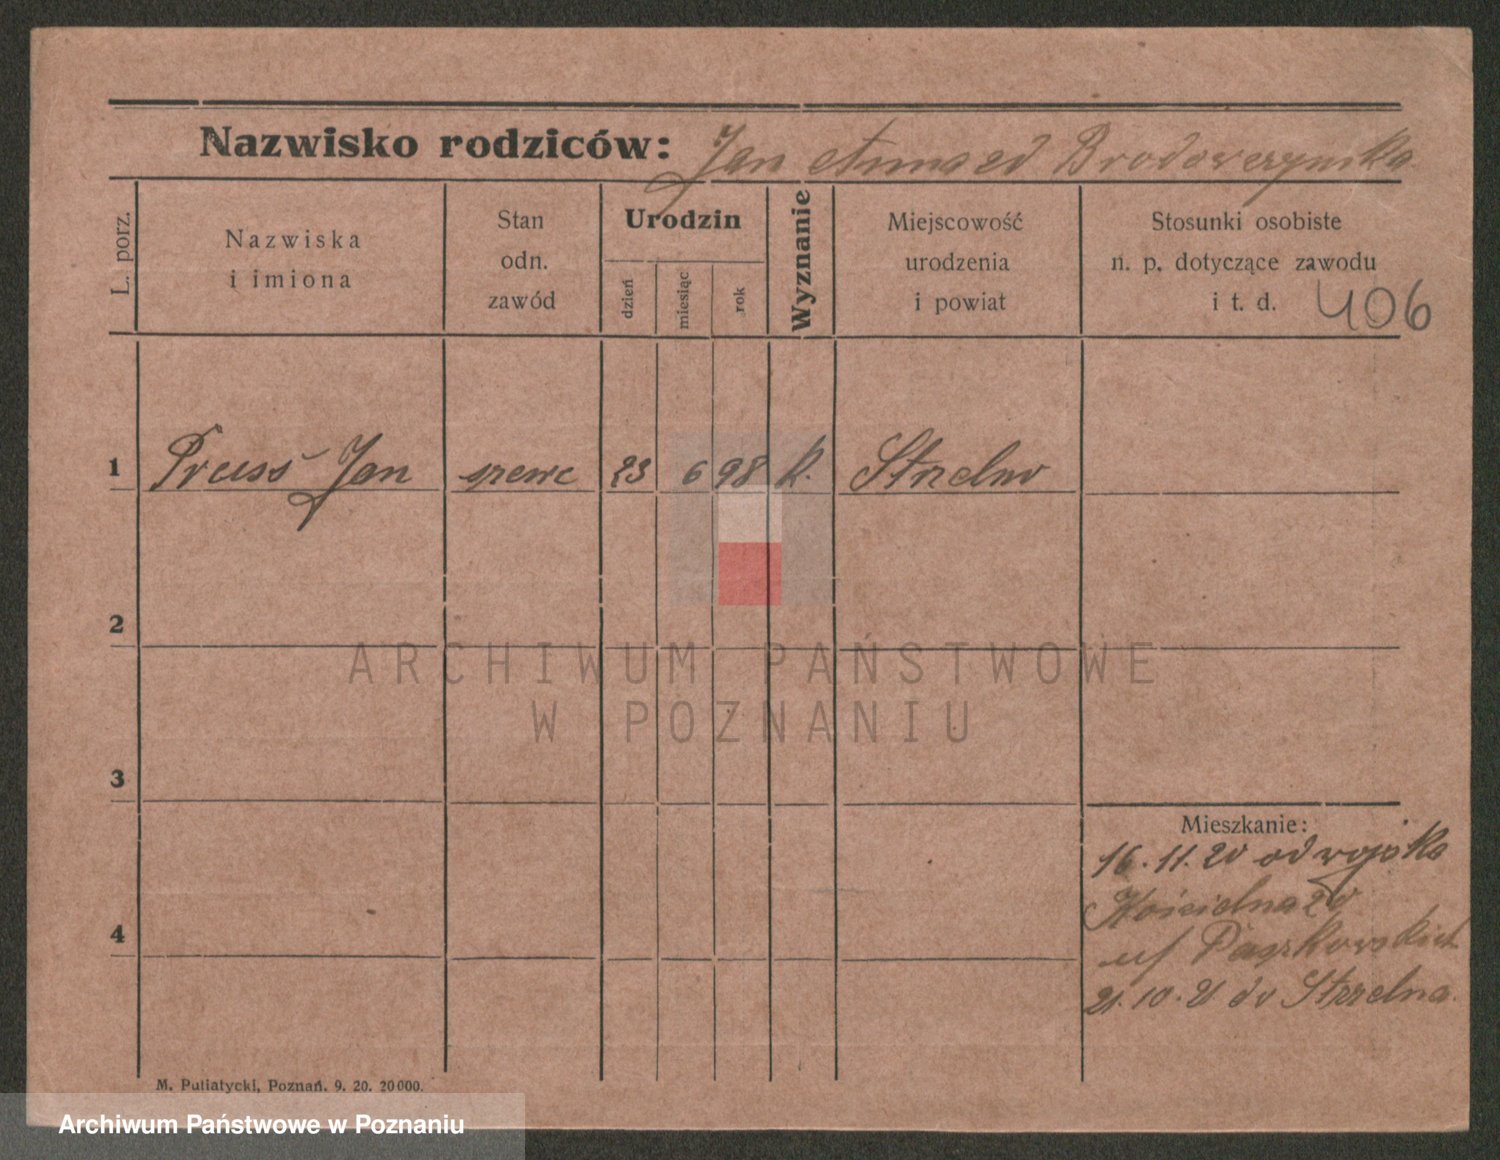 Nazwisko rodziców: Jan Anna zd Brodowczynska
L. porz.
Nazwiska
i imiona
Stan
odn.
zawód
Urodzin
dzień
miesiąc
rok
Wyznanie
Miejscowość
urodzenia
i powiat
Stosunki osobiste
n. p. dotyczące zawodu
i t. d. 406
1 Preuss Jan szewc 23 6 98 k. Strzelno
2
ARCHIWUM PAŃSTWOWE
W POZNANIU
3
Mieszkanie:
16.11.20 od wojska
Kościelna 20
u/ Paszkowskich
4
21.10.21 do Strzelna.
M. Putiatycki, Poznań. 9. 20. 20 000.
Archiwum Państwowe w Poznaniu